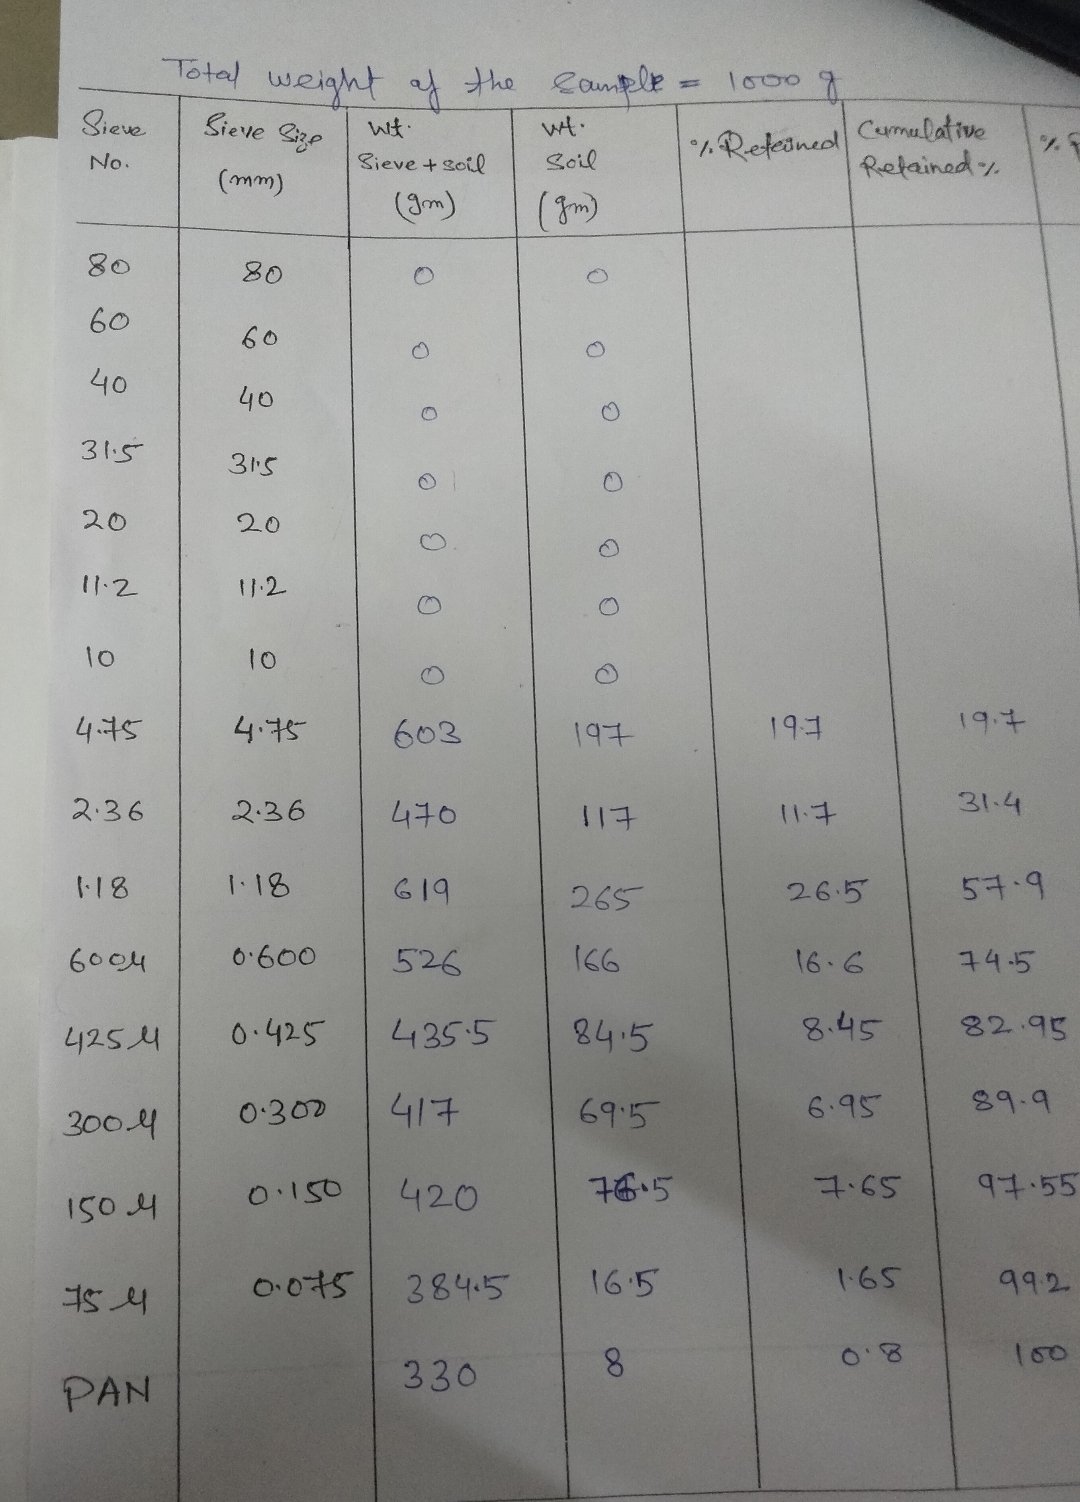 Total weight of the sample = 1000 g
Sieve No. Sieve Size (mm) wt. Sieve + soil (gm) wt. Soil (gm) % Reteined Cumulative Retained % %
80 80 0 0
60 60 0 0
40 40 0 0
31.5 31.5 0 0
20 20 0 0
11.2 11.2 0 0
10 10 0 0
4.75 4.75 603 197 19.7 19.7
2.36 2.36 470 117 11.7 31.4
1.18 1.18 619 265 26.5 57.9
600μ 0.600 526 166 16.6 74.5
425μ 0.425 435.5 84.5 8.45 82.95
300μ 0.300 417 69.5 6.95 89.9
150μ 0.150 420 76.5 7.65 97.55
75μ 0.075 384.5 16.5 1.65 99.2
PAN 330 8 0.8 100